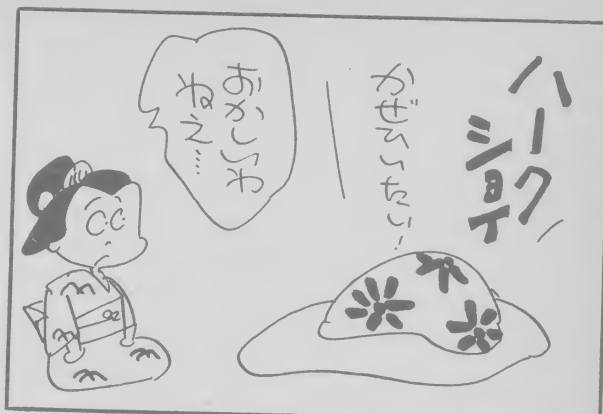 ハーク
ショイ
かぜひいたい
おかしいわ
ねえ…